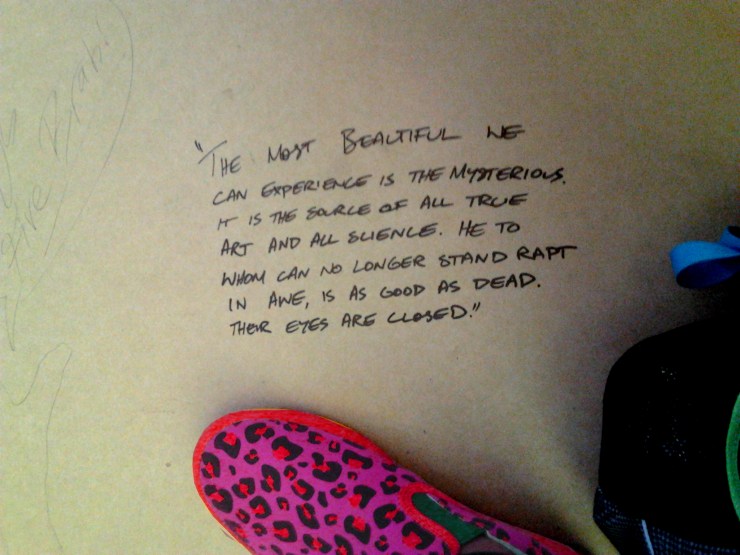 "THE MOST BEAUTIFUL WE
CAN EXPERIENCE IS THE MYSTERIOUS.
IT IS THE SOURCE OF ALL TRUE
ART AND ALL SCIENCE. HE TO
WHOM CAN NO LONGER STAND RAPT
IN AWE, IS AS GOOD AS DEAD.
THEIR EYES ARE CLOSED."